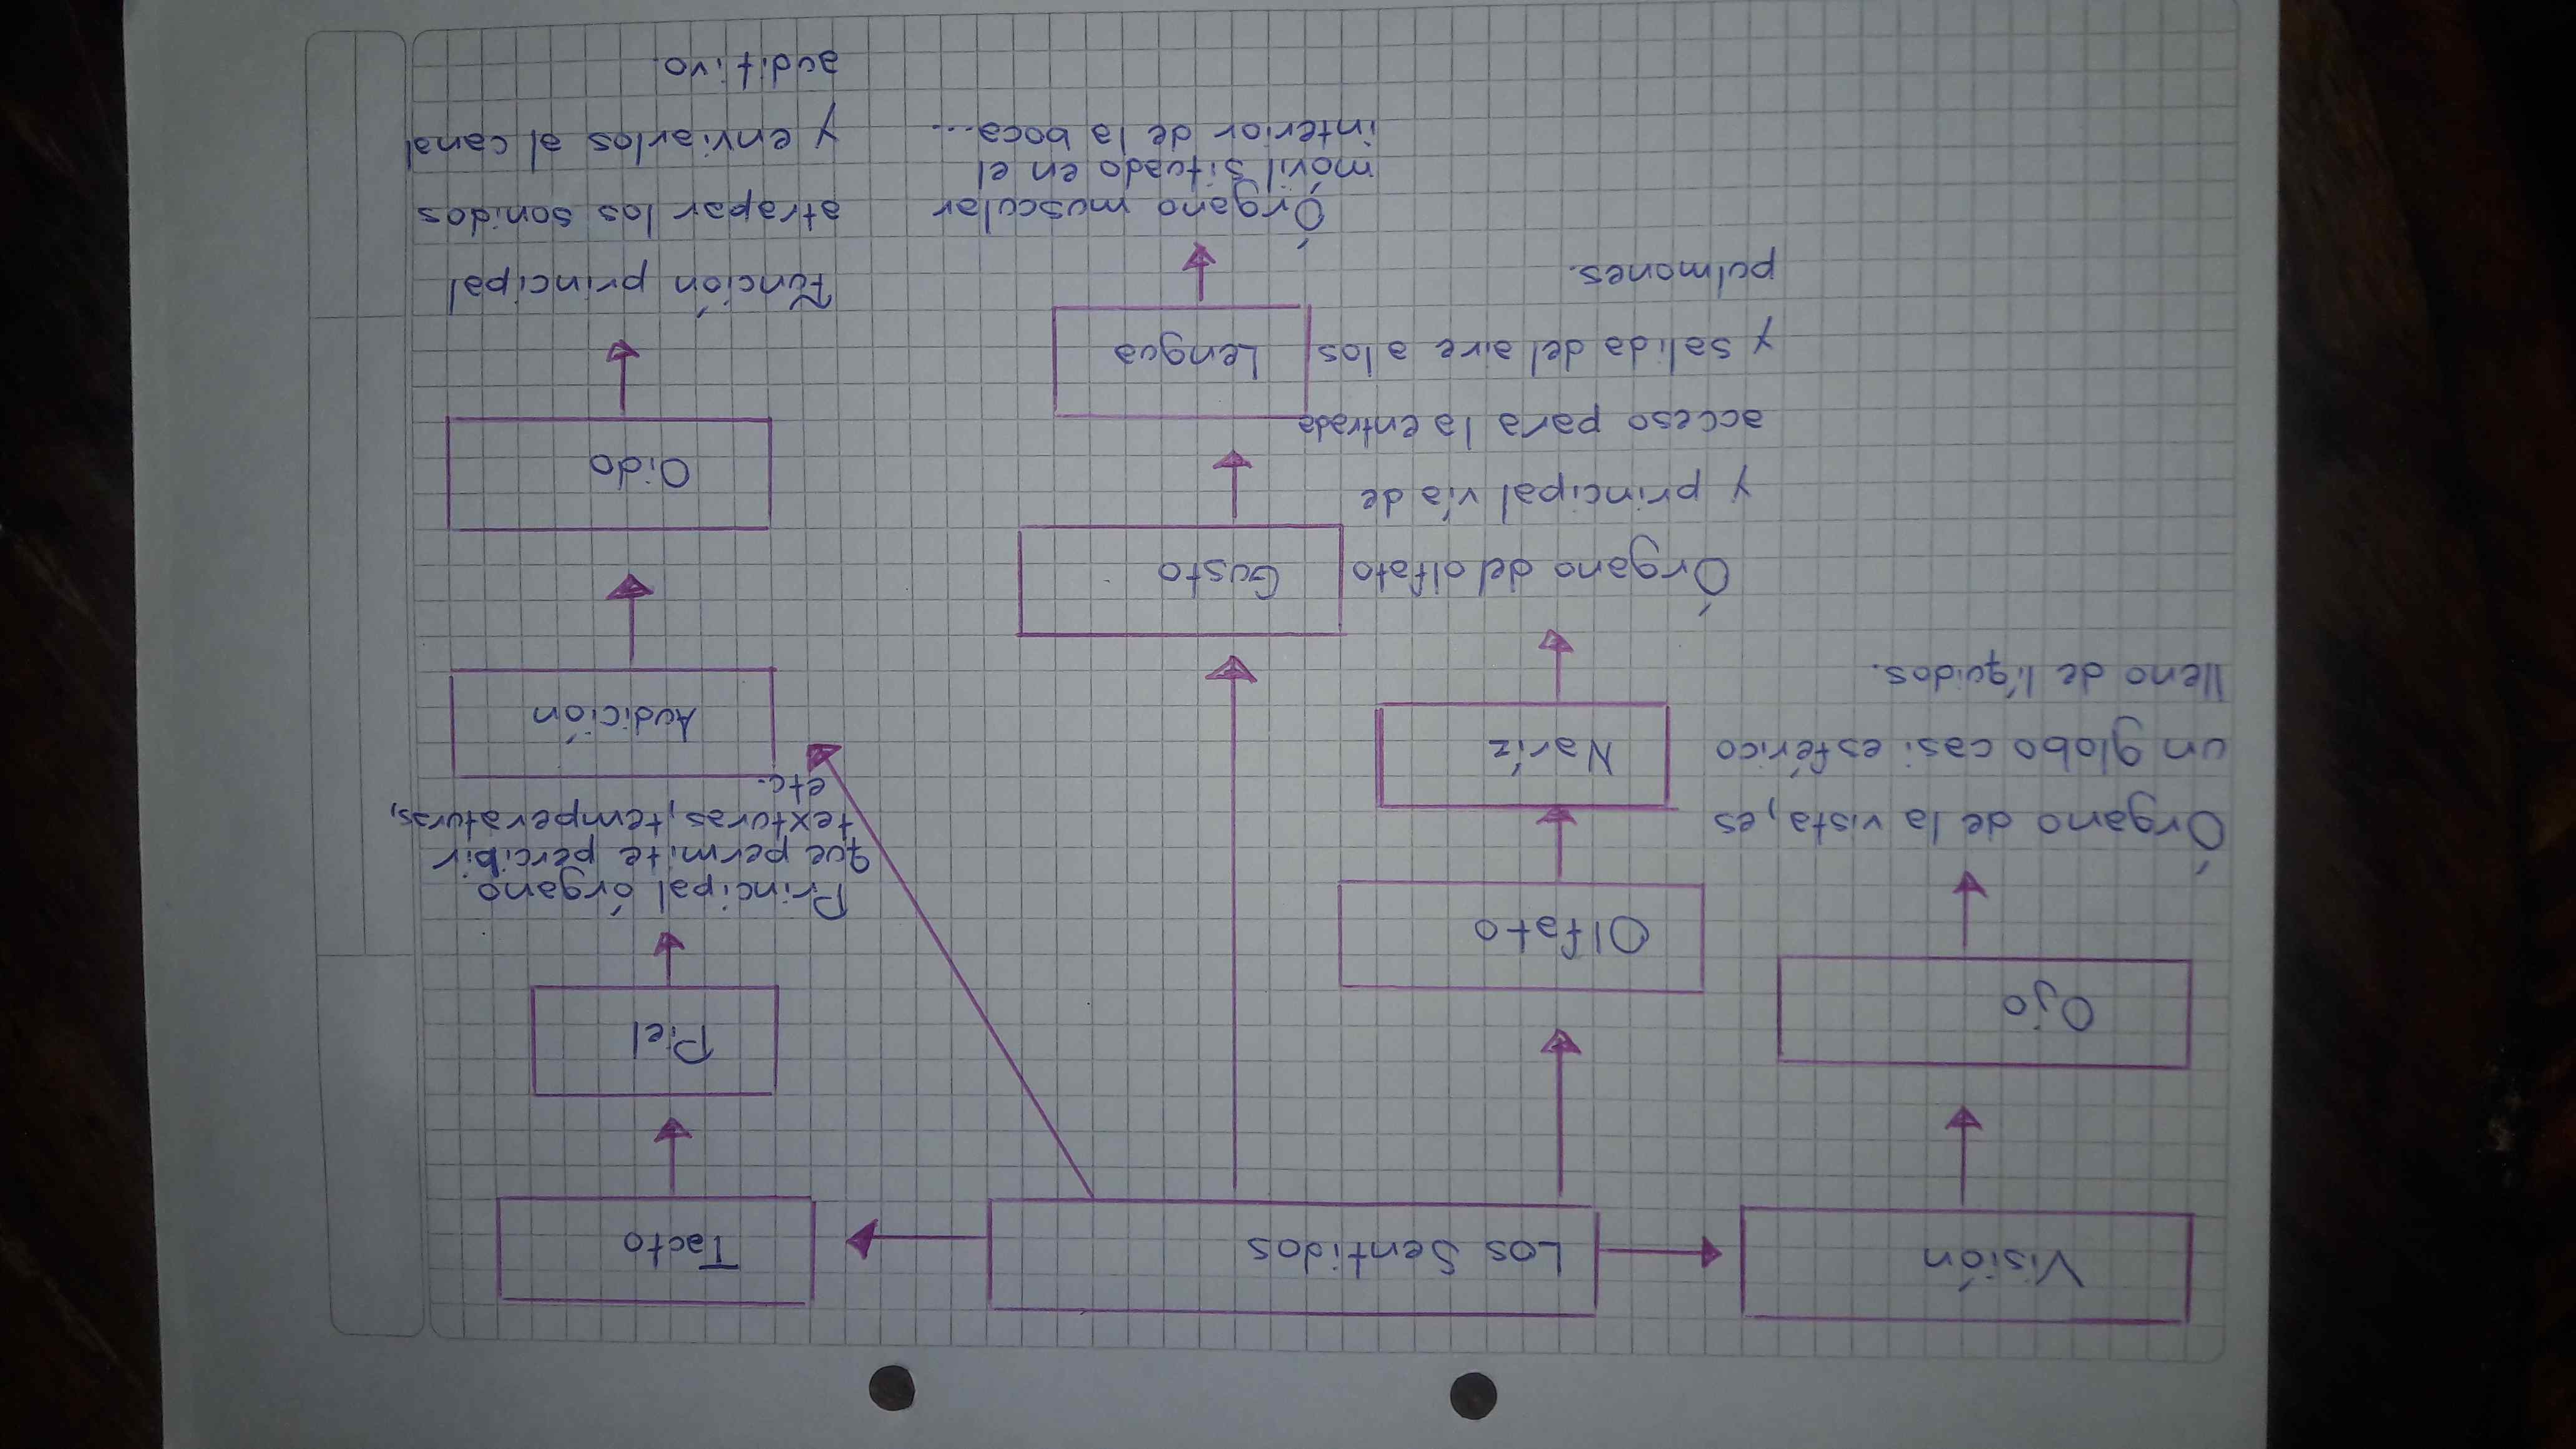 Visión
Los Sentidos
Tacto
Ojo
Órgano de la vista, es
un globo casi esférico
lleno de líquidos.
Olfato
Naríz
Órgano del olfato
y principal vía de
acceso para la entrada
y salida del aire a los
pulmones.
Gusto
Lengua
Órgano muscular
móvil situado en el
interior de la boca...
Piel
Principal órgano
que permite percibir
texturas, temperaturas,
etc.
Audición
Oido
Función principal
atrapar los sonidos
y enviarlos al canal
auditivo.